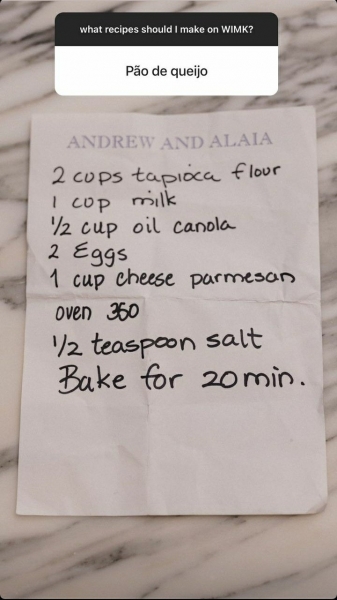 what recipes should I make on WIMK?
Pão de queijo
ANDREW AND ALAIA
2 cups tapioca flour
1 cup milk
1/2 cup oil canola
2 Eggs
1 cup cheese parmesan
oven 350
1/2 teaspoon salt
Bake for 20 min.